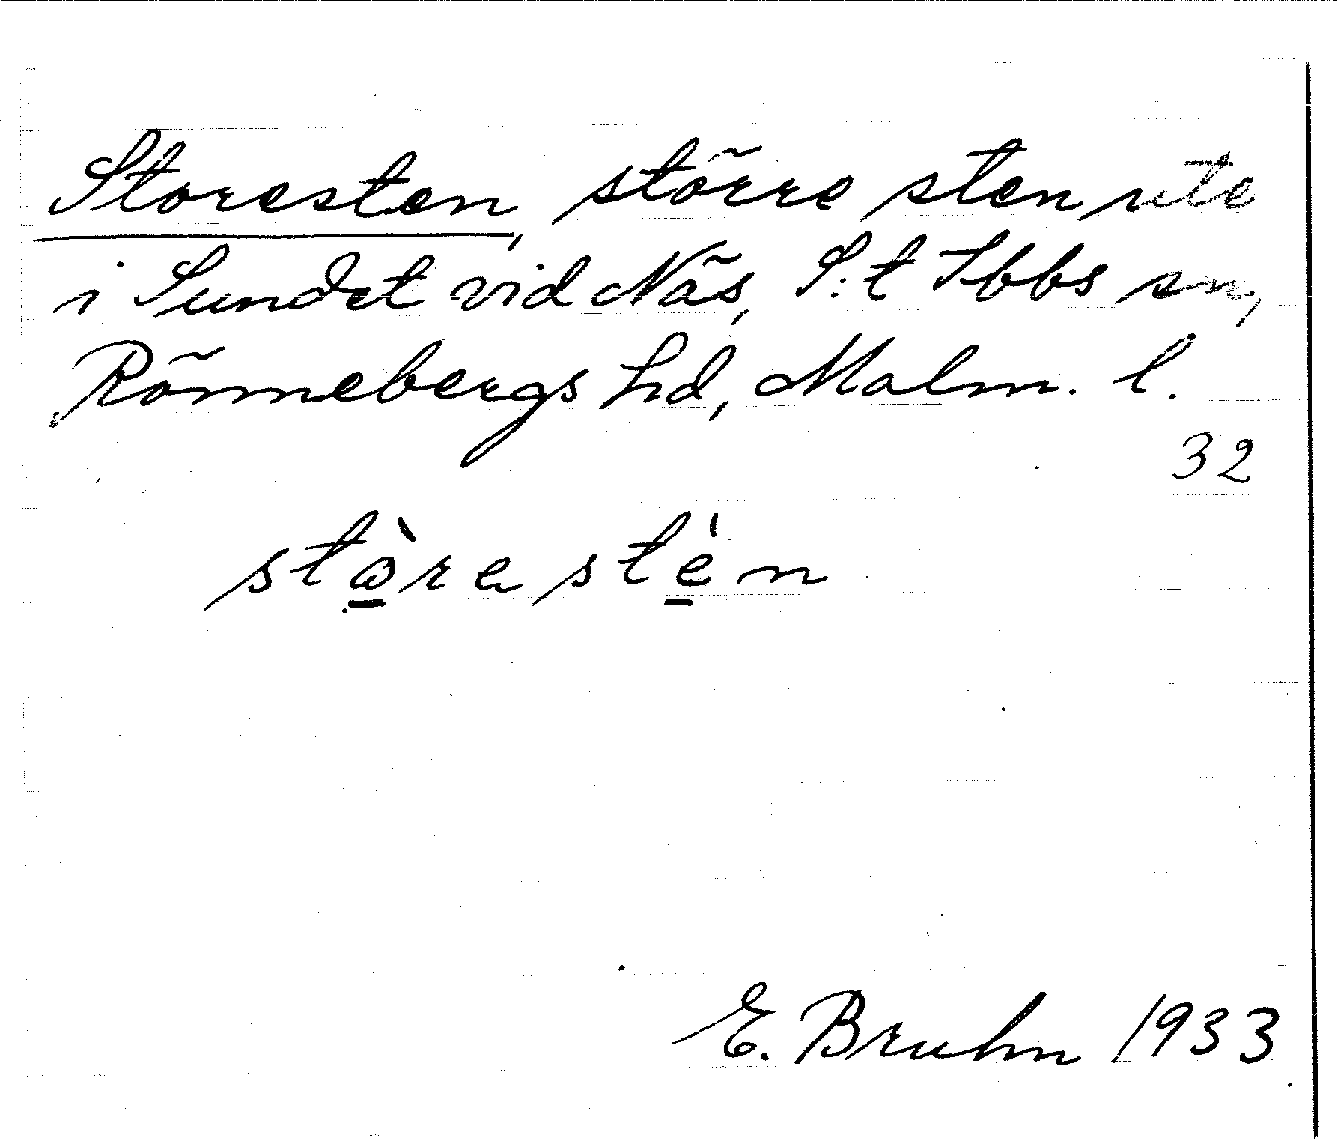 Storesten, större sten ute
i Sundet vid Näs, S:t Ibbs sn,
Rönnebergs hd, Malm. l.
32
stòrestén
E. Bruhn 1933